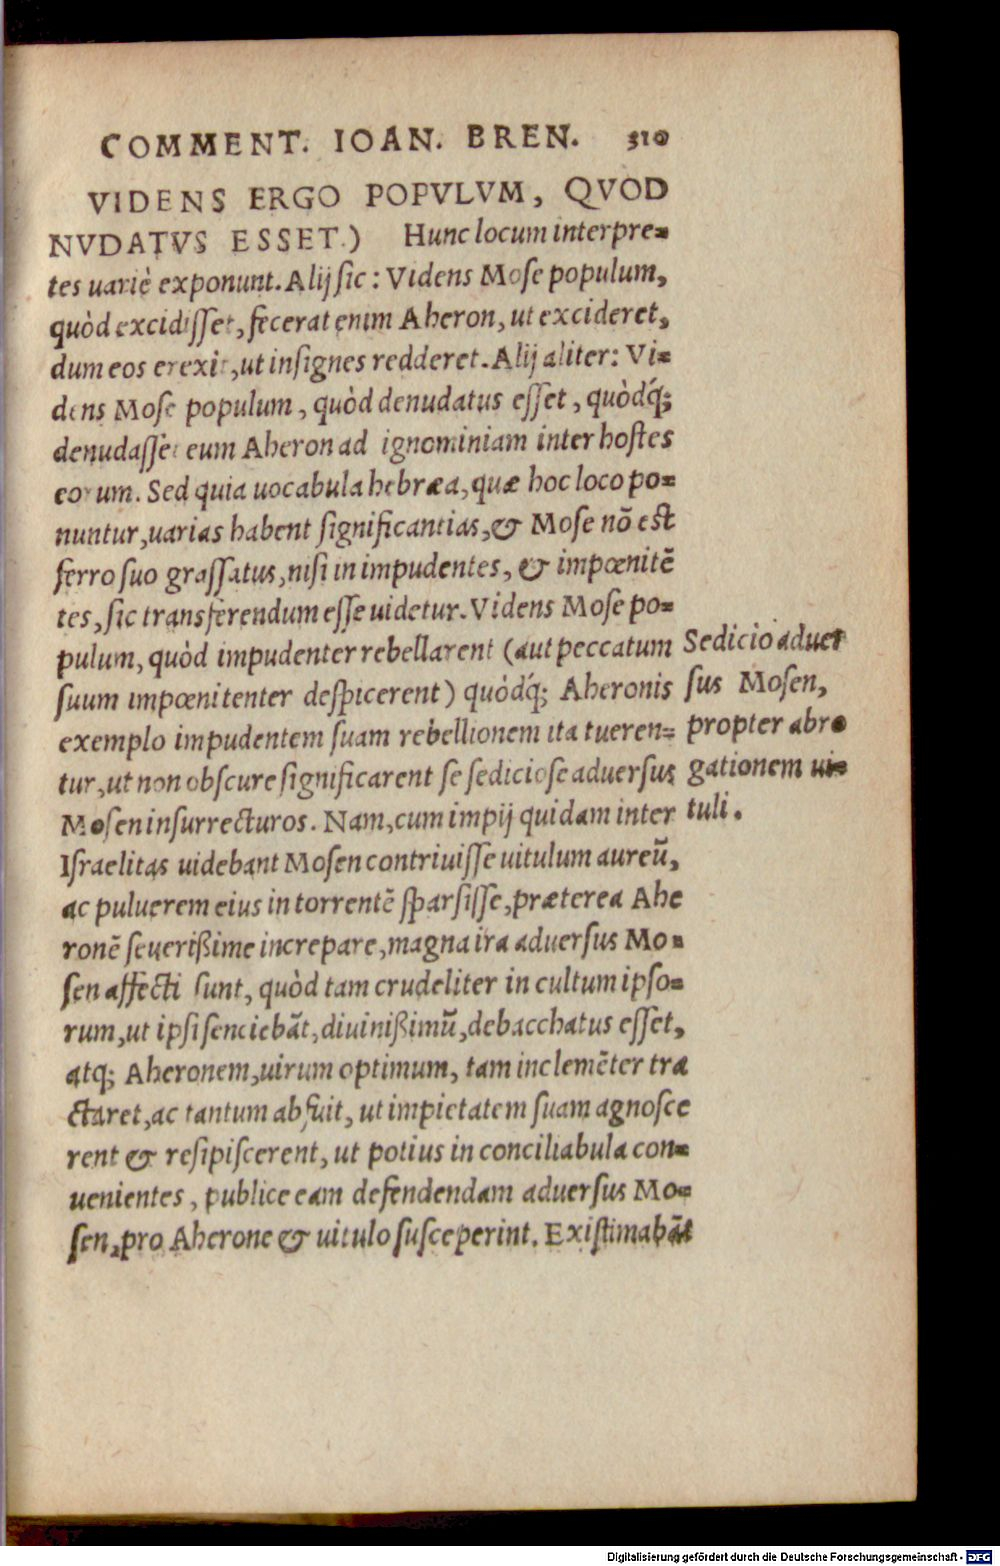 COMMENT. IOAN. BREN. 310
VIDENS ERGO POPVLVM, QVOD
NVDATVS ESSET.) Hunc locum interpre=
tes uariè exponunt. Alij sic: Videns Mose populum,
quòd excidisset, fecerat enim Aheron, ut excideret,
dum eos erexit, ut insignes redderet. Alij aliter: Vi=
dens Mose populum, quòd denudatus esset, quòdq́;
denudasset eum Aheron ad ignominiam inter hostes
eorum. Sed quia uocabula hebræa, quæ hoc loco po=
nuntur, uarias habent significantias, & Mose nō est
ferro suo grassatus, nisi in impudentes, & impœnitē
tes, sic transferendum esse uidetur. Videns Mose po=
pulum, quòd impudenter rebellarent (aut peccatum
suum impœnitenter despicerent) quòdq́; Aheronis
exemplo impudentem suam rebellionem ita tueren=
tur, ut non obscure significarent se sediciose aduersus
Mosen insurrecturos. Nam, cum impij quidam inter
Israelitas uidebant Mosen contriuisse uitulum aureū,
ac puluerem eius in torrentē sparsisse, præterea Ahe
ronē seuerißime increpare, magna ira aduersus Mo=
sen affecti sunt, quòd tam crudeliter in cultum ipso=
rum, ut ipsi senciebāt, diuinißimū, debacchatus esset,
atq; Aheronem, uirum optimum, tam inclemēter tra
ctaret, ac tantum abfuit, ut impietatem suam agnosce
rent & resipiscerent, ut potius in conciliabula con=
uenientes, publice eam defendendam aduersus Mo=
sen, pro Aherone & uitulo susceperint. Existimabāt
Sedicio aduer
sus Mosen,
propter abro
gationem ui=
tuli.
Digitalisierung gefördert durch die Deutsche Forschungsgemeinschaft - DFG